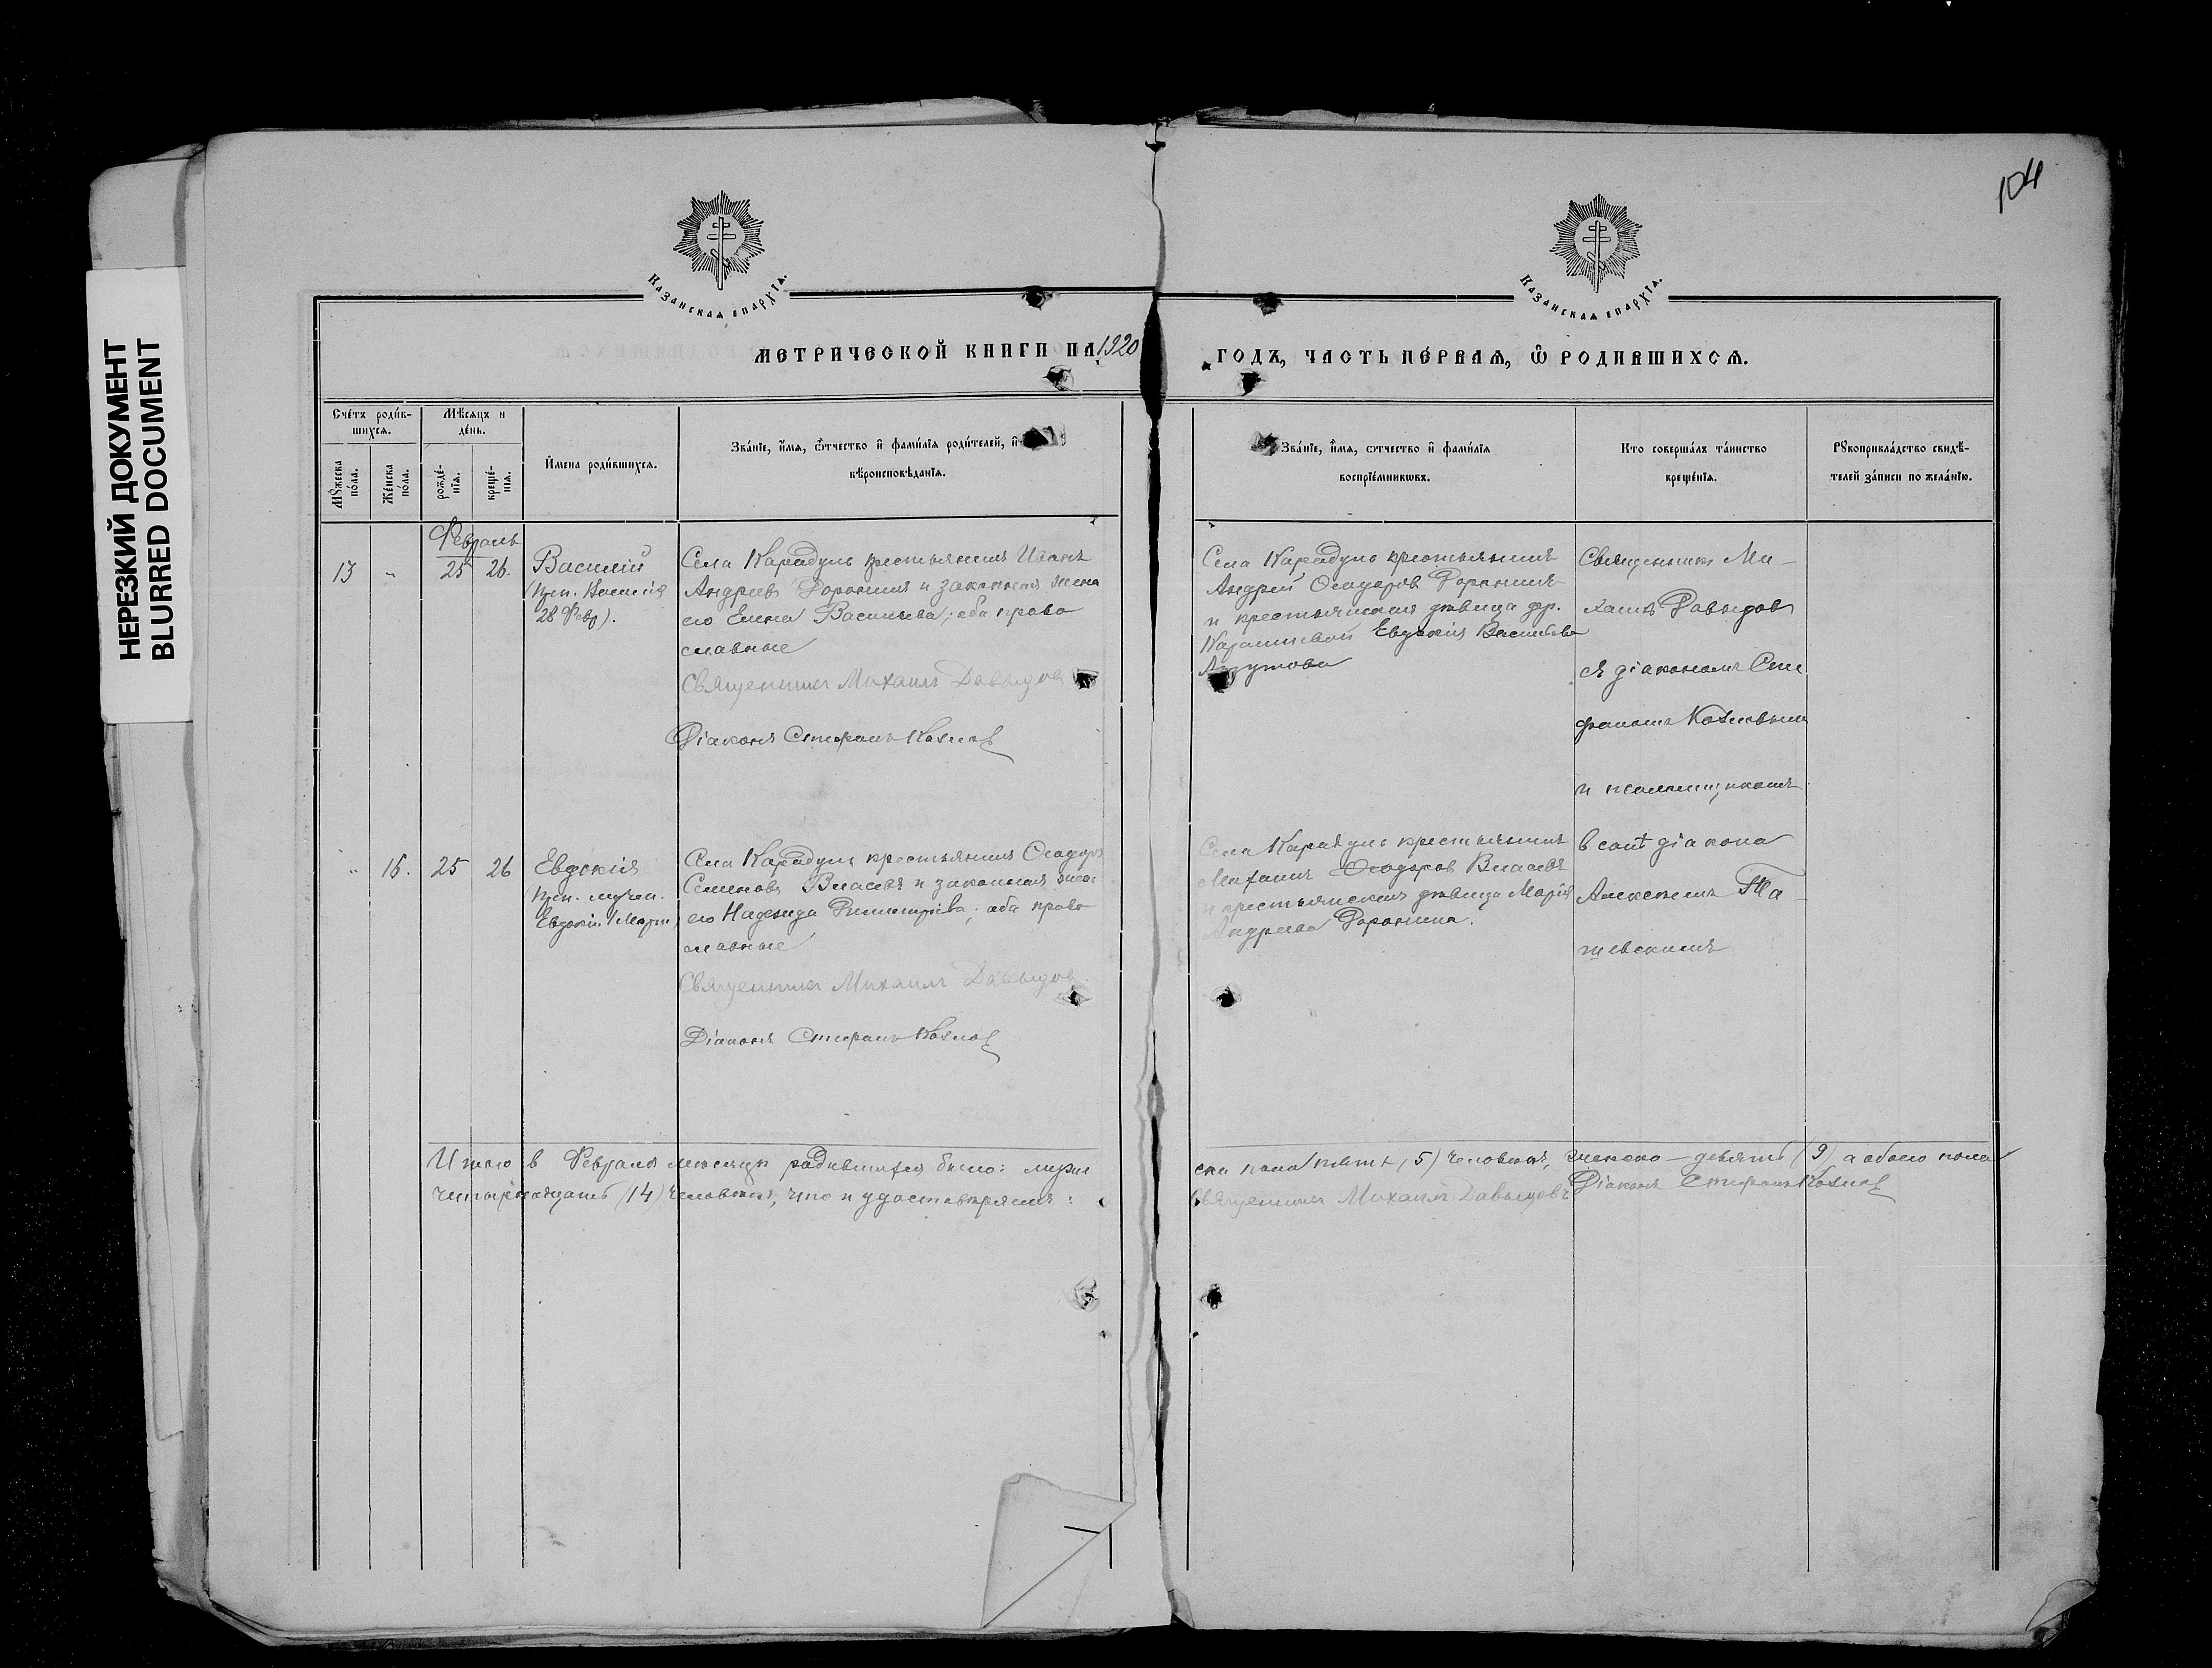 104
НЕРЕЗКИЙ ДОКУМЕНТ
BLURRED DOCUMENT
Казанская епархїѧ.
Казанская епархїѧ.
МЕТРИЧЕСКОЙ КНИГИ НА 1920
ГОДЪ, ЧАСТЬ ПЕ́РВАѦ, Ѿ РОДИВШИХСѦ.
Сче́тъ роди́в-
шихсѧ.
Мꙋжеска по́ла.
Же́нска по́ла.
Мѣ́сѧцъ и де́нь.
рожде́-нїѧ.
креще́-нїѧ.
И҆мена роди́вшихсѧ.
Зва́нїе, и҆́мѧ, ѻ҆́тчество и҆ фами́лїѧ роди́телей, и҆
вѣроисповѣ́данїѧ.
Зва́нїе, и҆́мѧ, ѻ҆́тчество и҆ фами́лїѧ
воспрїе́мникѡвъ.
Кто соверша́лъ та́инство
креще́нїѧ.
Рꙋкоприкла́дство свидѣ́-
телей за́писи по жела́нїю.
Февраль
13 " 25 26.
Василій
(преп. Василія
28 Февр).
Села Карадуль крестьянинъ Иванъ
Андреевъ Доронинъ и законная жена
его Елена Васильева; оба право
славные
Священникъ Михаилъ Давыдов
Діаконъ Стефанъ Козлов
Села Карадуль крестьянинъ
Андрей Ѳеодоров Доронинъ
и крестьянская дѣвица др.
Евдокія Васильева
Священникъ Ми-
хаилъ Давыдов
съ діакономъ Сте
фаномъ Козловым
и псаломщикомъ
" 16. 25 26
Евдокія
(преп. мучен.
Евдокіи 1 Март)
Села Карадуль крестьянинъ Ѳеодоръ
Семеновъ Власовъ и законная жена
его Надежда Димитріева; оба право
славные
Священникъ Михаилъ Давыдов
Діаконъ Стефанъ Козлов
Села Карадуль крестьянинъ
Михаилъ Ѳеодоров Власовъ
и крестьянская дѣвица Марія
Андреева Доронина.
в санѣ діакона
Алексѣемъ
Итого в Февралѣ мѣсяцѣ родившихся было: муже
ска пола пять (5) человѣкъ, женска – девять (9) а обоего пола
четырнадцать (14) человѣкъ, что и удостовѣряемъ:
Священникъ Михаилъ Давыдовъ Діаконъ Стефанъ Козлов